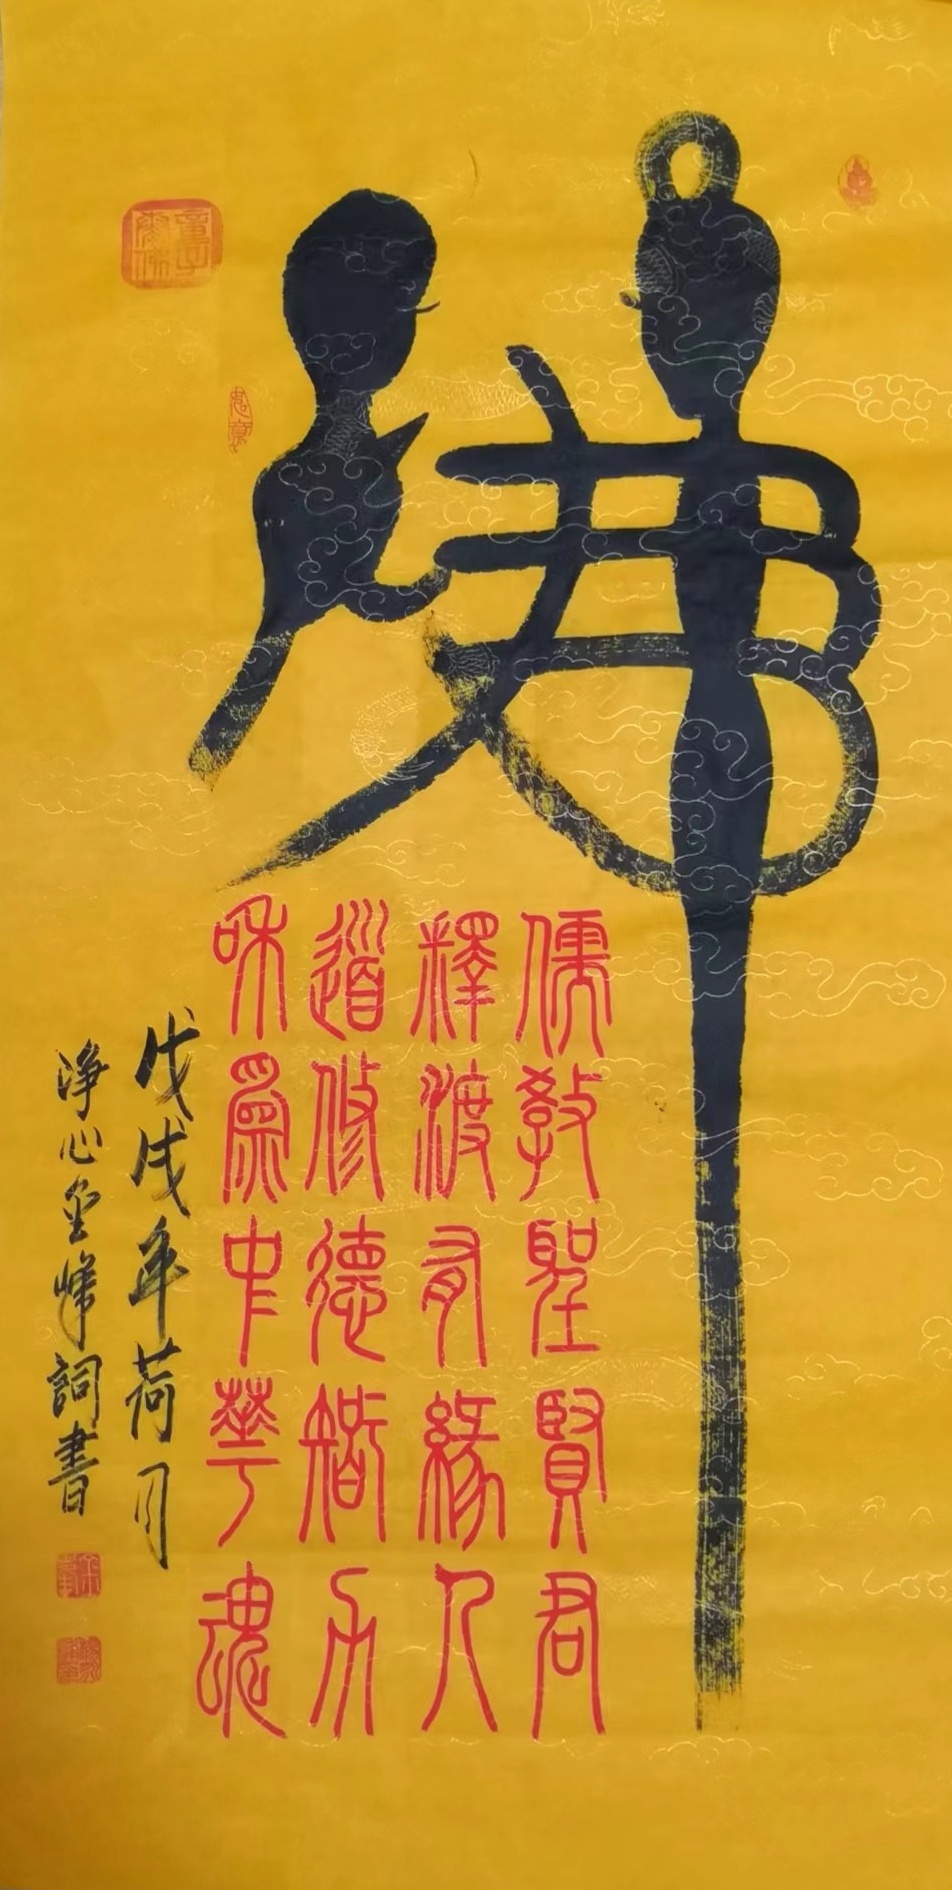 佛
儒教聖賢君
釋渡有緣人
道修德智子
和為中華魂
戊戌年荷月
淨心金峰詞書